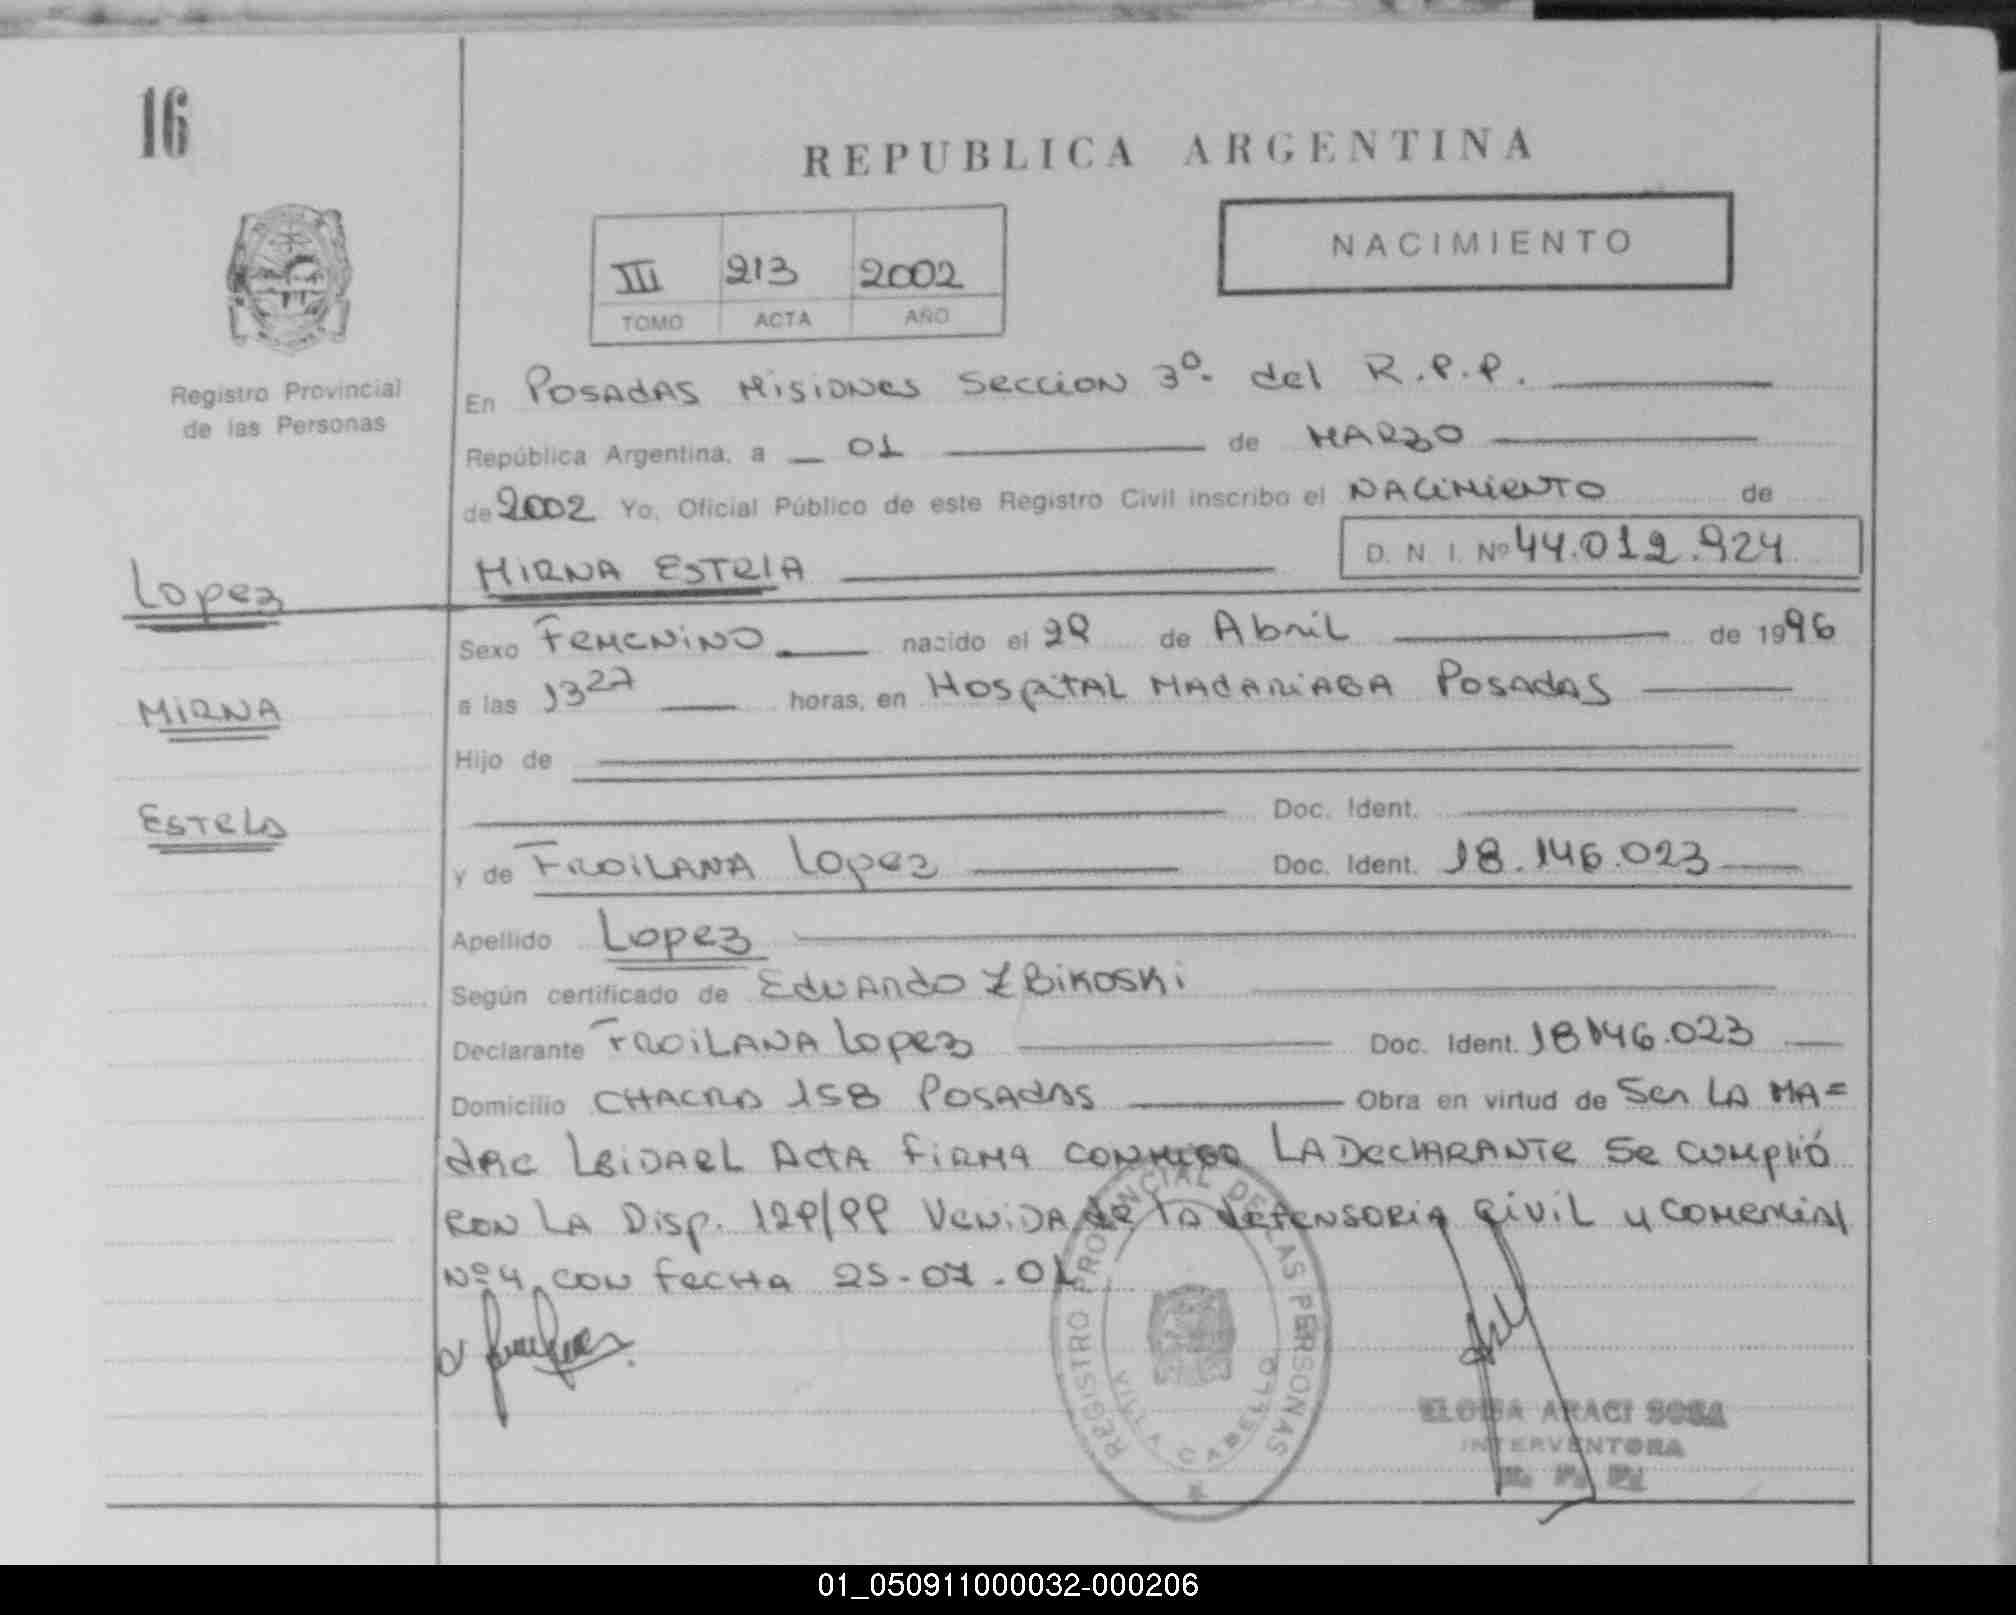 16
REPUBLICA ARGENTINA
NACIMIENTO
III 213 2002
TOMO ACTA AÑO
Registro Provincial
de las Personas
En POSADAS MISIONES SECCION 3º del R.P.P.
República Argentina, a 01 de MARZO
de 2002 Yo, Oficial Público de este Registro Civil inscribo el NACIMIENTO de
MIRNA ESTELA D. N. I. Nº 44.012.924
Lopez
MIRNA
ESTELA
Sexo FEMENINO nacido el 29 de Abril de 1996
a las 13 27 horas, en HOSPITAL MADARIAGA POSADAS
Hijo de
Doc. Ident.
y de FROILANA Lopez Doc. Ident. 18.146.023
Apellido Lopez
Según certificado de EDUARDO ZBIKOSKI
Declarante FROILANA Lopez Doc. Ident. 18146.023
Domicilio CHACRA 158 POSADAS Obra en virtud de Ser LA MA=
dre LEIDA EL ACTA FIRMA CONMIGO LA DECLARANTE Se CUMPLIÓ
CON LA Disp. 129/99 VENIDA de la DEFENSORIA CIVIL y COMERCIAL
Nº 4 CON FECHA 25-07-01
REGISTRO PROVINCIAL DE LAS PERSONAS
VILLA CABELLO
ELOISA ARACI SOSA
INTERVENTORA
01_050911000032-000206